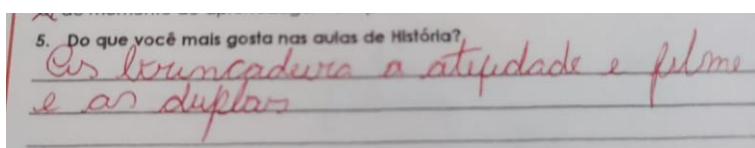 5. Do que você mais gosta nas aulas de História?
As brincadeira a atifidade e filme
e as duplas